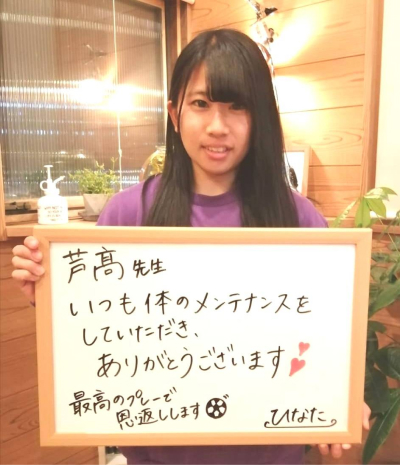 芦髙先生
いつも体のメンテナンスを
していただき、
ありがとうございます
最高のプレーで
恩返しします
ひなた